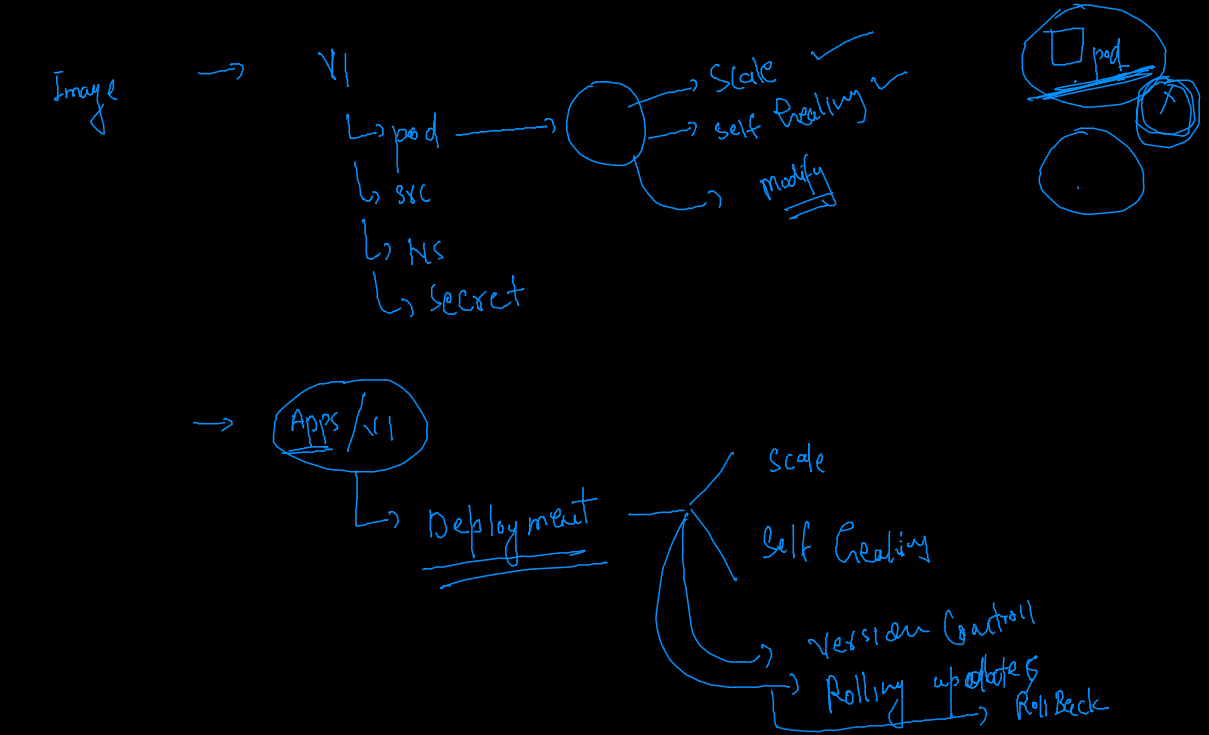 Image
V1
pod
src
NS
Secret
Scale
Self Healing
modify
pod
X
Apps/V1
Deployment
Scale
Self Healing
Version Controll
Rolling updates
RollBack